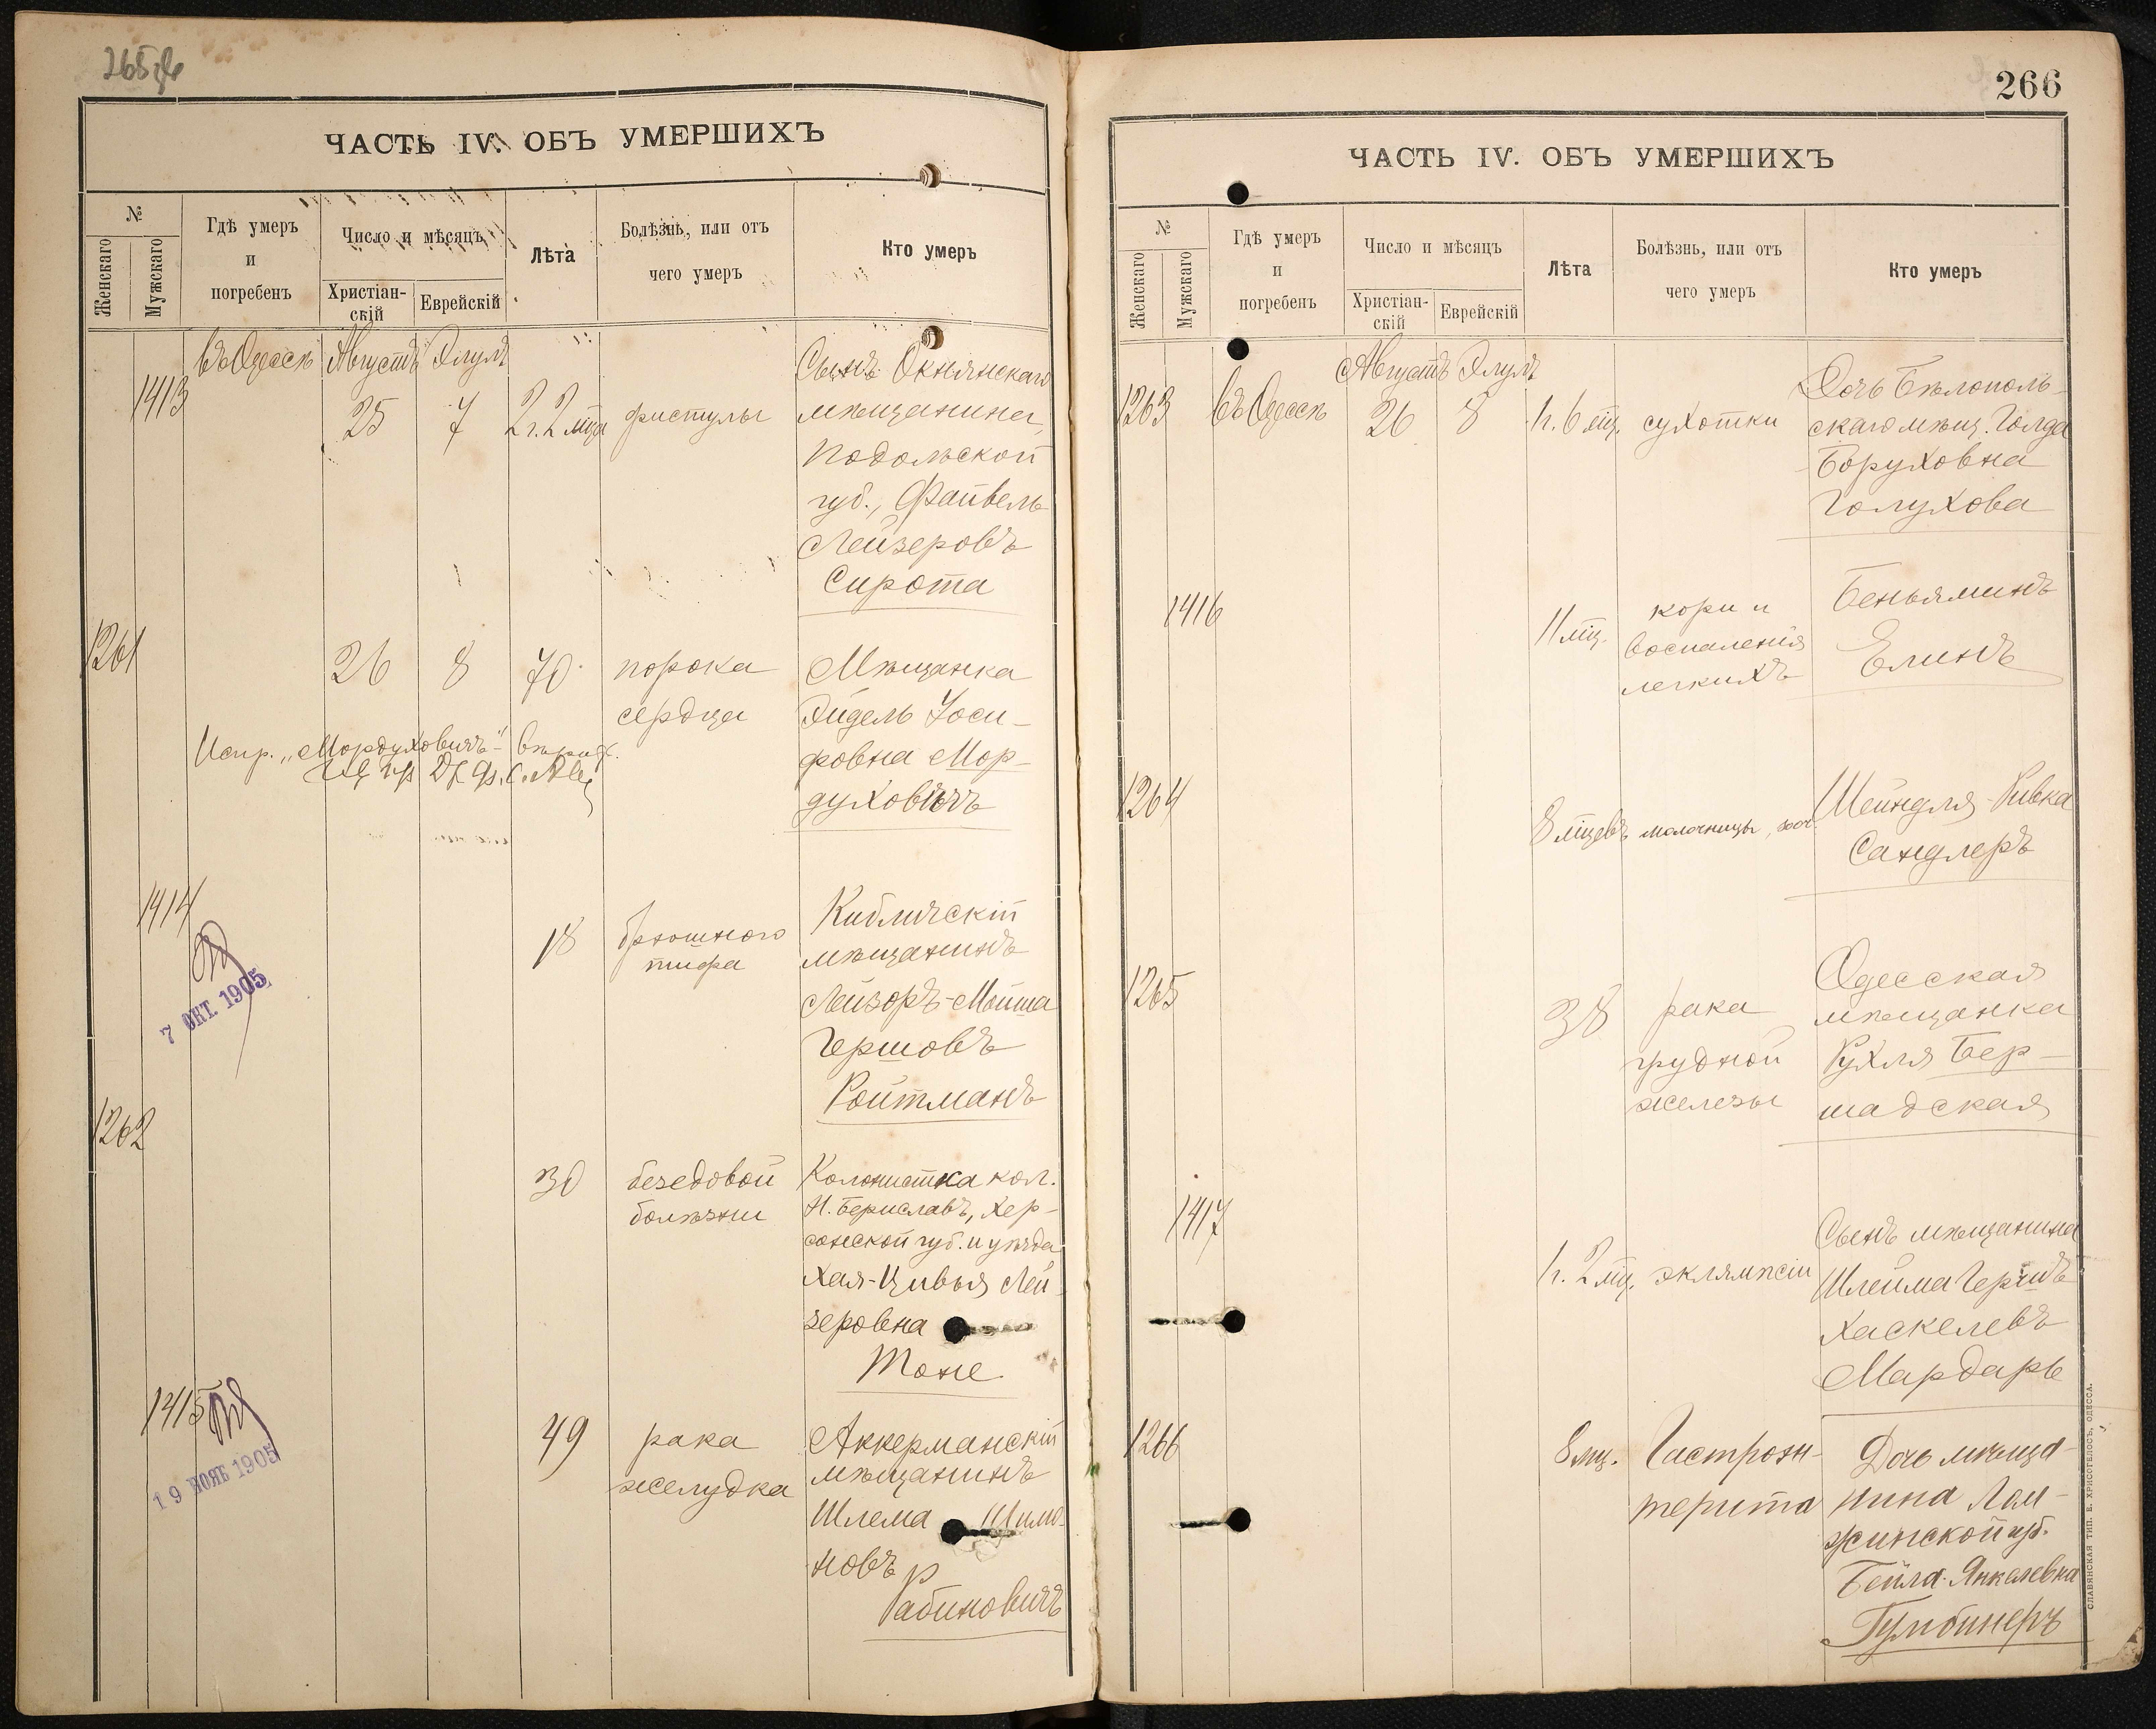 ЧАСТЬ IV. ОБЪ УМЕРШИХЪ
№
Женскаго
Мужскаго
Гдѣ умеръ
и
погребенъ
Число и мѣсяцъ
Христіан-
скій
Еврейскій
Лѣта
Болѣзнь, или отъ
чего умеръ
Кто умеръ
въ Одессѣ Августъ Элулъ
1413 25 7 2 г. 2 мца фистулы
Сынъ Окнянскаго
мѣщанина,
Подольской
губ., Файвель
Лейзеровъ
Сирота
1261 26 8 70 порока
сердца
Мѣщанка
Эйдель Іоси-
фовна Мор-
духовичъ
Испр. „Мордуховичъ“ - вѣрно.
1414 18 брюшного
тифа
Кибличскій
мѣщанинъ
Лейзоръ-Мойша
Гершовъ
Ройтманъ
7 ОКТ. 1905
1262 30 безедовой
болѣзни
Колонистка кол.
Н. Бериславъ, Хер-
сонской губ. и уѣзда
Хая-Цивья Лей-
зеровна
Тоне
1415 49 рака
желудка
Аккерманскій
мѣщанинъ
Шлема Шимо-
новъ
Рабиновичъ
19 НОЯБ 1905
266
ЧАСТЬ IV. ОБЪ УМЕРШИХЪ
№
Женскаго
Мужскаго
Гдѣ умеръ
и
погребенъ
Число и мѣсяцъ
Христіан-
скій
Еврейскій
Лѣта
Болѣзнь, или отъ
чего умеръ
Кто умеръ
Августъ Элулъ
1263 въ Одессѣ 26 8 1 г. 6 мц. сухотки
Дочь Бѣлополь-
скаго мѣщ. Голда
Боруховна
Голухова
1416 11 мц. кори и
воспаленія
легкихъ
Беньяминъ
Елинъ
1264 8 мцевъ молочницы,
Шейндля-Ривка
Сандлеръ
1265 38 рака
грудной
железы
Одесская
мѣщанка
Рухля Бер-
шадская
1417 1 г. 2 мц. эклямпсіи
Сынъ мѣщанина
Шлейма Гершъ
Хаскелевъ
Мардарь
1266 8 мц. Гастроэн-
терита
Дочь мѣща-
нина Лом-
жинской губ.
Бейла Янкелевна
Гумбинеръ
СЛАВЯНСКАЯ ТИП. Е. ХРИСОГЕЛОСЪ, ОДЕССА.